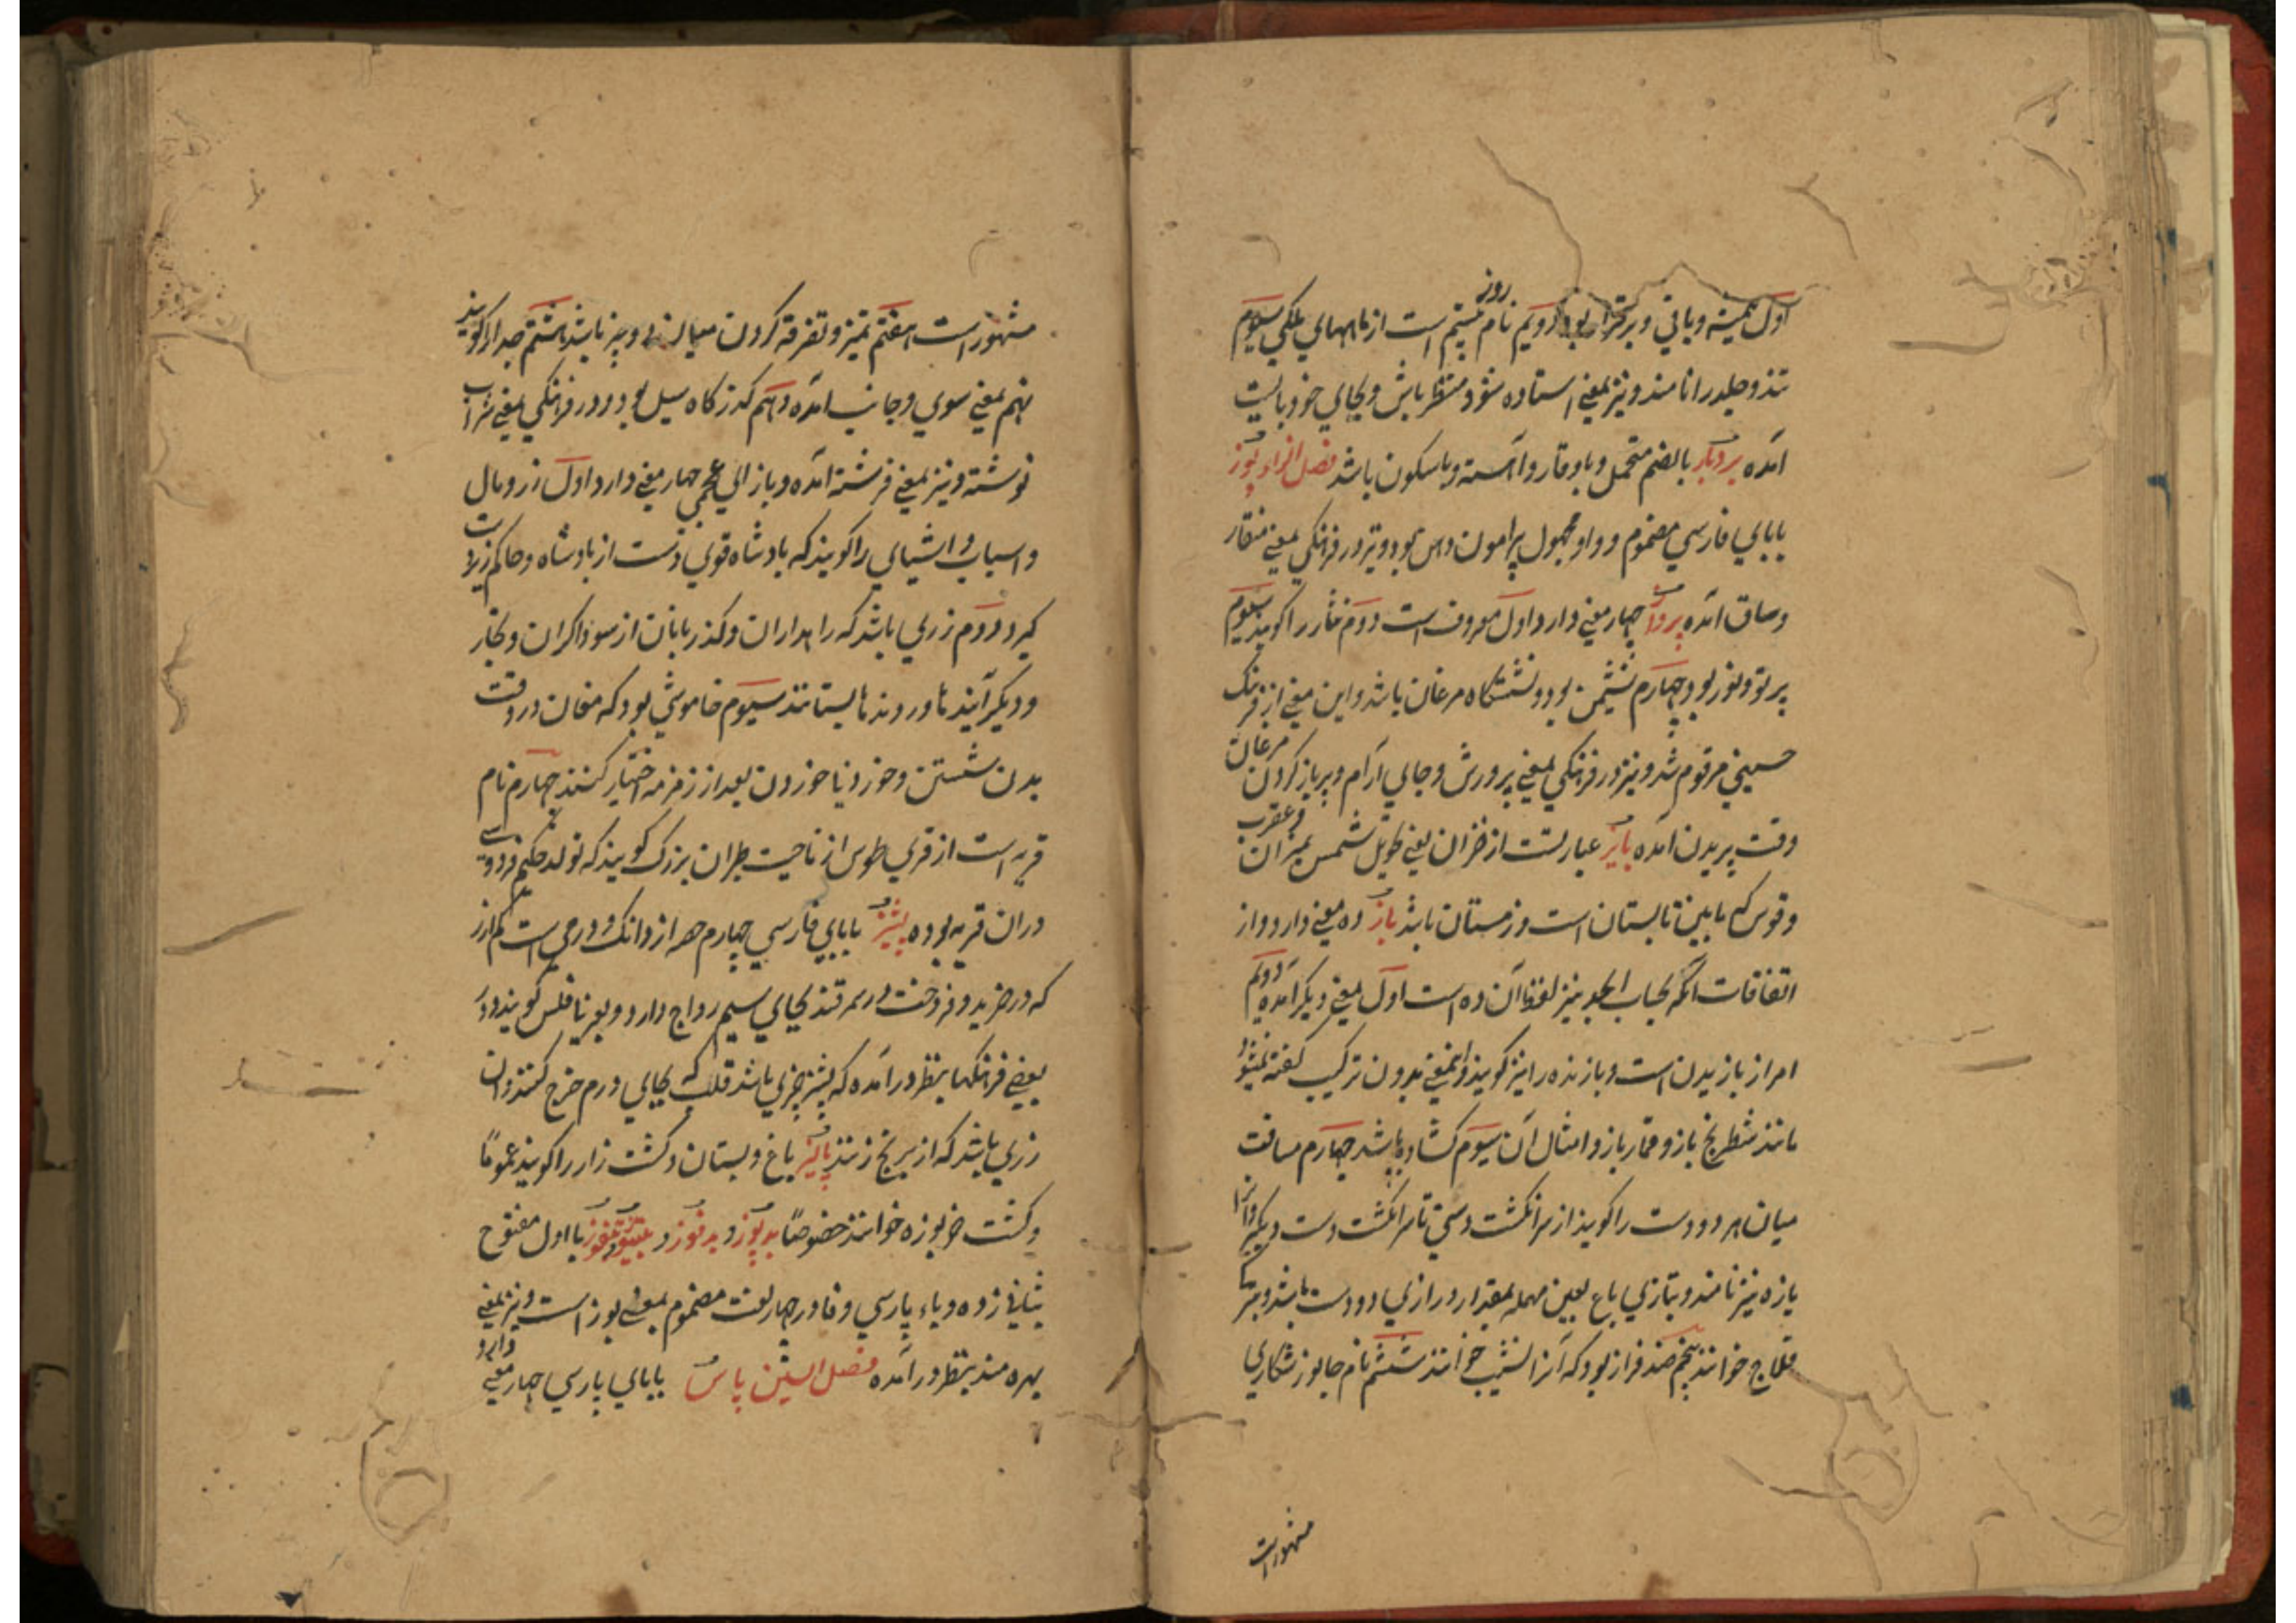 اول همیشه و باقی و برقرار بود دویم نام روز بیستم است از ماههای ملکی سیوم
تند و جلد را نامند و نیز بمعنی استاده شو و منتظر باش و بجای خود بایست
آمده بردبار بالضم متحمل و باوقار و آهسته و باسکون باشد فصل الزاء پوز
بابای فارسی مضموم و واو مجهول پیرامون دهن بود و نیز در فرهنگی بمعنی منقار
و ساق آمده پرواز چهار معنی دارد اول معروف است دوم نثار را گویند سیوم
پرتو و نور بود چهارم نشیمن بود و نشستگاه مرغان باشد و این معنی از فرهنگ
حسینی مرقوم شد و نیز در فرهنگی بمعنی پرورش و جای آرام و پر باز کردن مرغان
وقت پریدن آمده پائیز عبارتست از خزان یعنی تحویل شمس بمیزان و عقرب
و قوس که مابین تابستان است و زمستان باشد باز ده معنی دارد و از
اتفاقات آنکه بحساب ابجد نیز لفظ آن ده است اول بمعنی دیگر آمده دویم
امر از بازیدن است و بازنده را نیز گویند و اینمعنی بدون ترکیب گفته نمیشود
مانند شطرنج باز و قمار باز و امثال آن سیوم کشاده باشد چهارم مسافت
میان هر دو دست را گویند از سر انگشت دستی تا سر انگشت دست دیگر و آنرا
یازه نیز نامند و بتازی باع بعین مهمله بمقدار درازی دو دست باشد و بترکی
قلاج خوانند پنجم ضد فراز بود که آنرا نشیب خوانند ششم نام جانور شکاری
مشهور است
مشهور است هفتم تمیز و تفرقه کردن میان دو چیز باشد هشتم جدا را گویند
نهم بمعنی سوی و جانب آمده دهم گذرگاه سیل بود و در فرهنگی بمعنی شراب
نوشته و نیز بمعنی فرشته آمده و بازای عجمی چهار معنی دارد اول زر و مال
و اسباب و اشیای را گویند که بادشاه قوی دست از بادشاه و حاکم زیردست
گیرد دوم زری باشد که راهداران و گذربانان از سوداگران و تجار
و دیگر آینده و روندها بستانند سیوم خاموشی بود که مغان در وقت
بدن شستن و خوردنیها خوردن بعد از زمزمه اختیار کنند چهارم نام
قریه است از قری طوس از ناحیت طبران بزرگ گویند که تولد حکیم فردوسی
دران قریه بوده پشیز بابای فارسی چهارم حصه از دانگ و درمی است کم ارز
که در خرید و فروخت در سمرقند بجای سیم رواج دارد و بعربی فلس گویند و در
بعضی فرهنگها بنظر در آمده که پشیز چیزی باشد قلب که بجای درم خرج کنند و آن
زری باشد که از برنج زنند پالیز باغ و بستان و کشت زار را گویند عموماً
و کشت خربوزه خوانند خصوصاً بدپوز و بدفوز و بتپوز و بتفوز با اول مفتوح
بثانی زده و باء پارسی و فا در چهار لغت مضموم بمعنی پوز است و نیز بمعنی
بهره مند بنظر در آمده فصل السین پاس بابای پارسی چهار معنی دارد